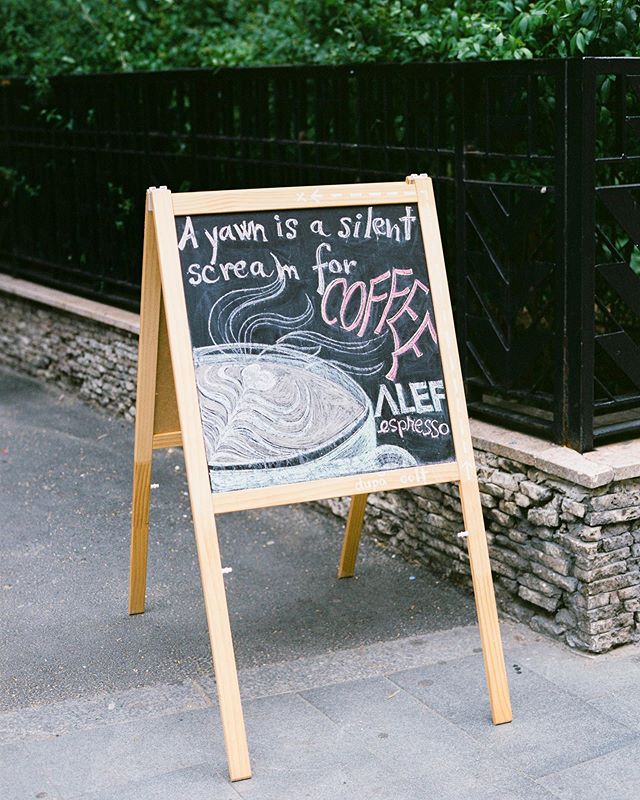 A yawn is a silent
scream for
COFFEE
ALEF
espresso
dupa colt